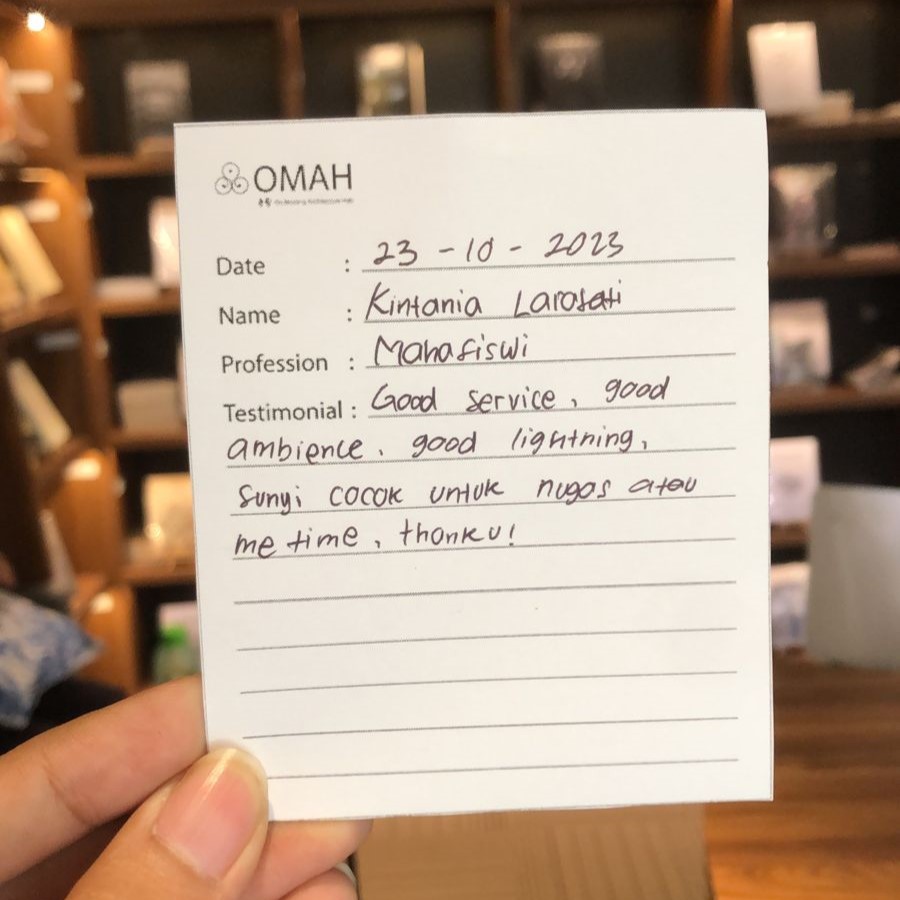 OMAH
Date : 23 - 10 - 2023
Name : Kintania Larasati
Profession : Mahasiswi
Testimonial : Good service, good
ambience, good lightning,
Sunyi cocok untuk nugas atau
me time, thank u!